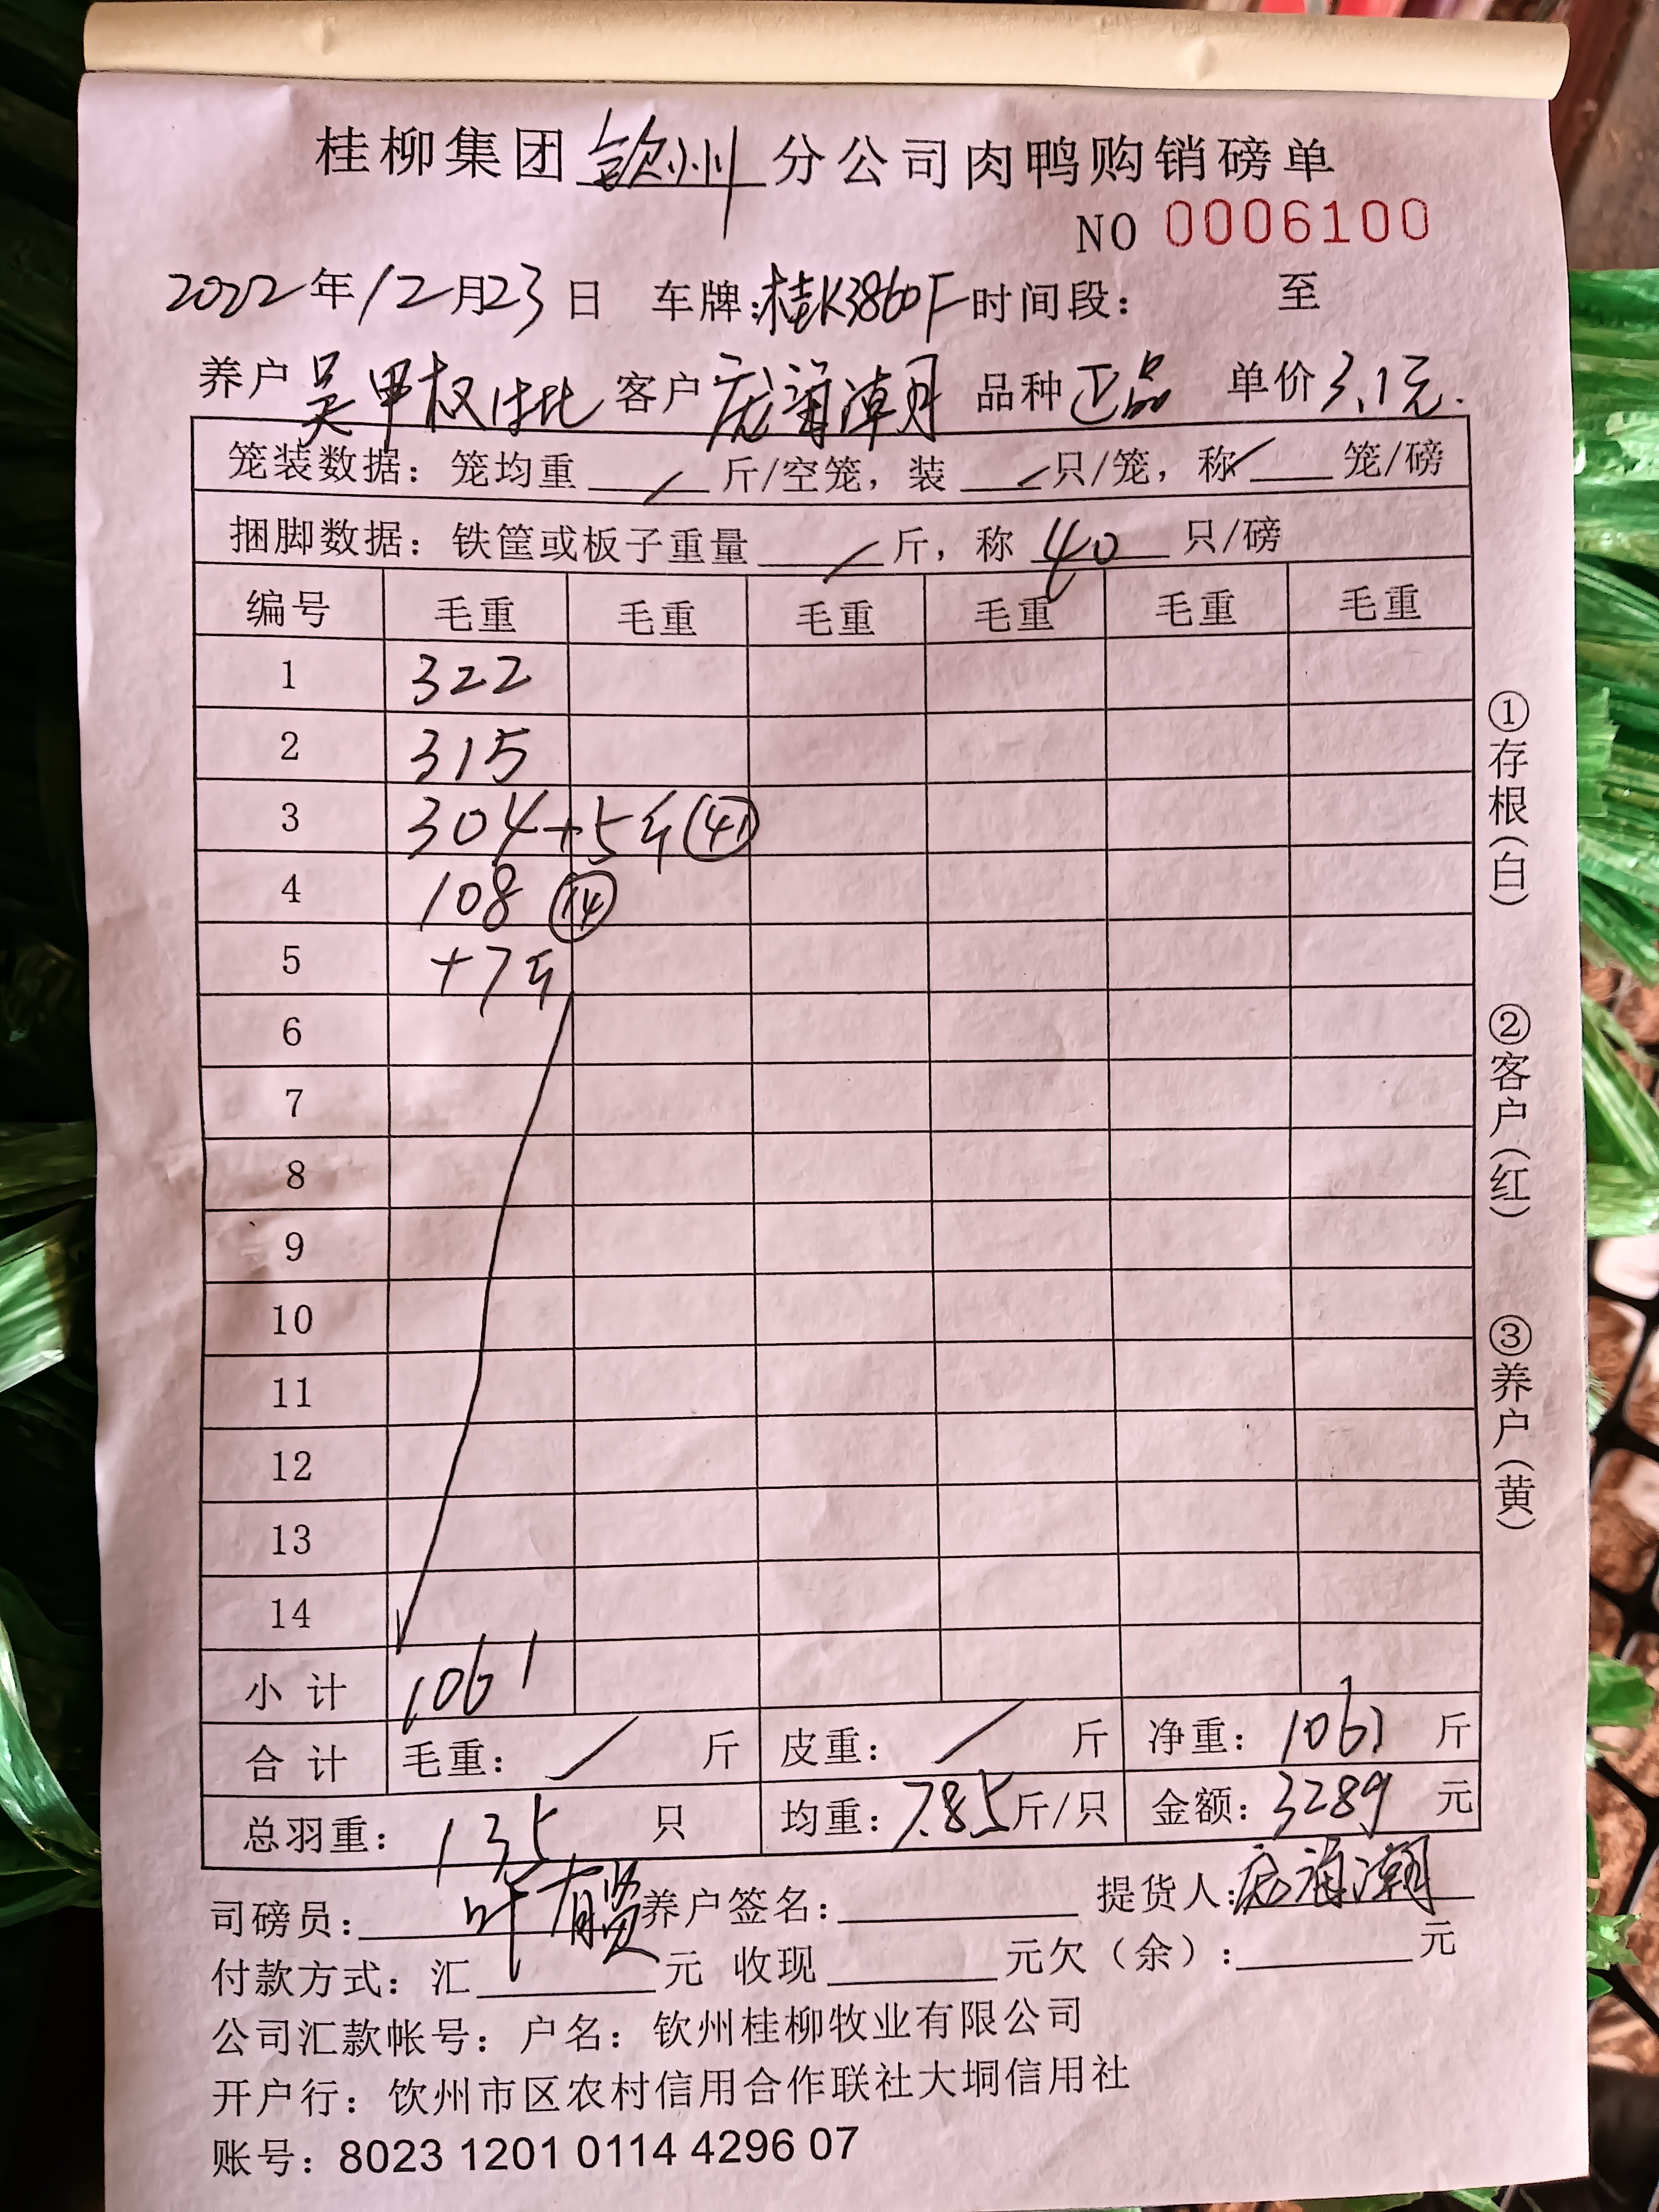 桂柳集团 钦州 分公司肉鸭购销磅单
NO 0006100
2022年12月23日 车牌:桂K3860F 时间段: 至
养户 吴甲权 客户 潮 品种 正品 单价 3.1元.
笼装数据: 笼均重 / 斤/空笼, 装 / 只/笼, 称 / 笼/磅
捆脚数据: 铁筐或板子重量 / 斤, 称 40 只/磅
编号 毛重 毛重 毛重 毛重 毛重 毛重
1 322
2 315
3 304+5斤 41
4 108 14
5 +7斤
6
7
8
9
10
11
12
13
14
小计 1061
合计 毛重: / 斤 皮重: / 斤 净重: 1061 斤
总羽重: 135 只 均重: 7.85 斤/只 金额: 3289 元
司磅员: 叶有贤 养户签名: 提货人: 潮
付款方式: 汇 元 收现 元欠(余): 元
公司汇款帐号: 户名: 钦州桂柳牧业有限公司
开户行: 钦州市区农村信用合作联社大垌信用社
账号: 8023 1201 0114 4296 07
①存根(白)
②客户(红)
③养户(黄)